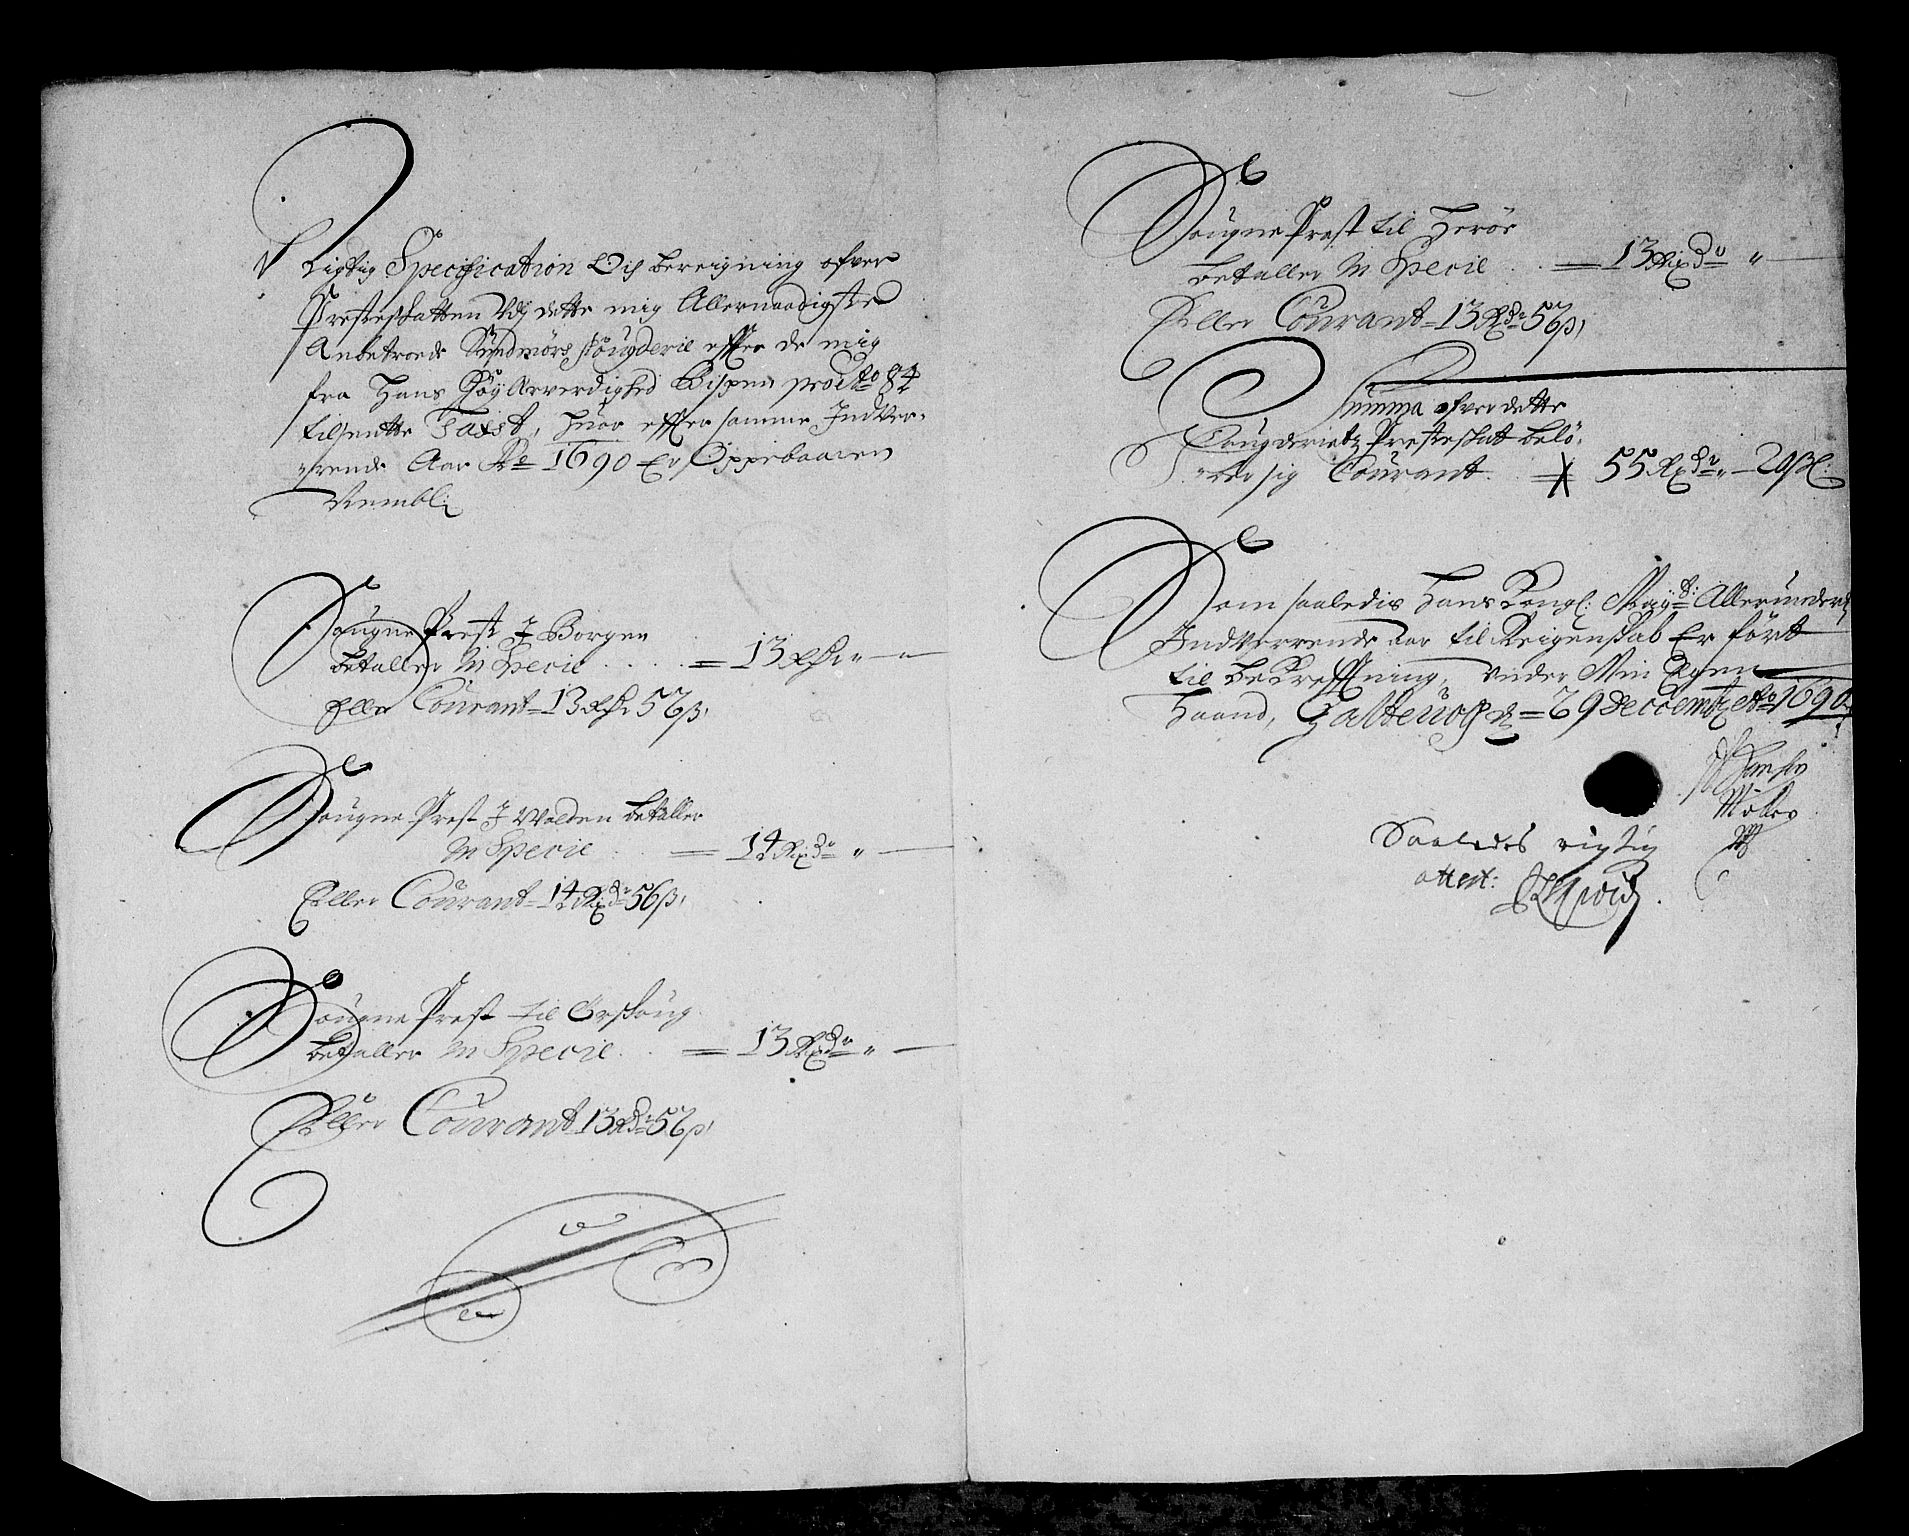 Rigtig Specification Och bereigning ofver
Presteskatten Udj dette mig Allernaadigste
Anbetroede Sundmørs fougderie effter de mig
fra Hans Høy Ærverdighed Bispen pro Ao 84
tilsentte Taxt, huor effter samme Indver-
erende Aar No 1690 Er Oppebaaren
Nembl:
Sougne Prest J Borgen
betaller In Specie . . . . = 13 Rdr „ —
Eller Courant = 13 Rdr 56 β,
Sougne Prest J Volden betaller
In Specie . = 14 Rixdr „ —
Eller Courant = 14 Rixdr 56 β,
Sougne Prest til Ørskoug
betaller In Specie . . = 13 Rixdr „ —
Eller Courant 13 Rdr 56 β,
Sougne Prest til Herøe
betaller In Specie . . = 13 Rixdr „ —
Eller Courant = 13 Rdr 56 β,
Summa ofver dette
Fougderietz Presteskat belø-
ber sig Courant . = 55 Rixdr „ — 20 βl:
Som saaledis Hans Kongl: Mayts: Allerunderd
Indverrende aar til Reigenskab Er ført
til beKrefftning, under Min Egen
Haand, 29 Decembr Ao 1690
Hansen
Møller
Saaledes rigtig
attest: